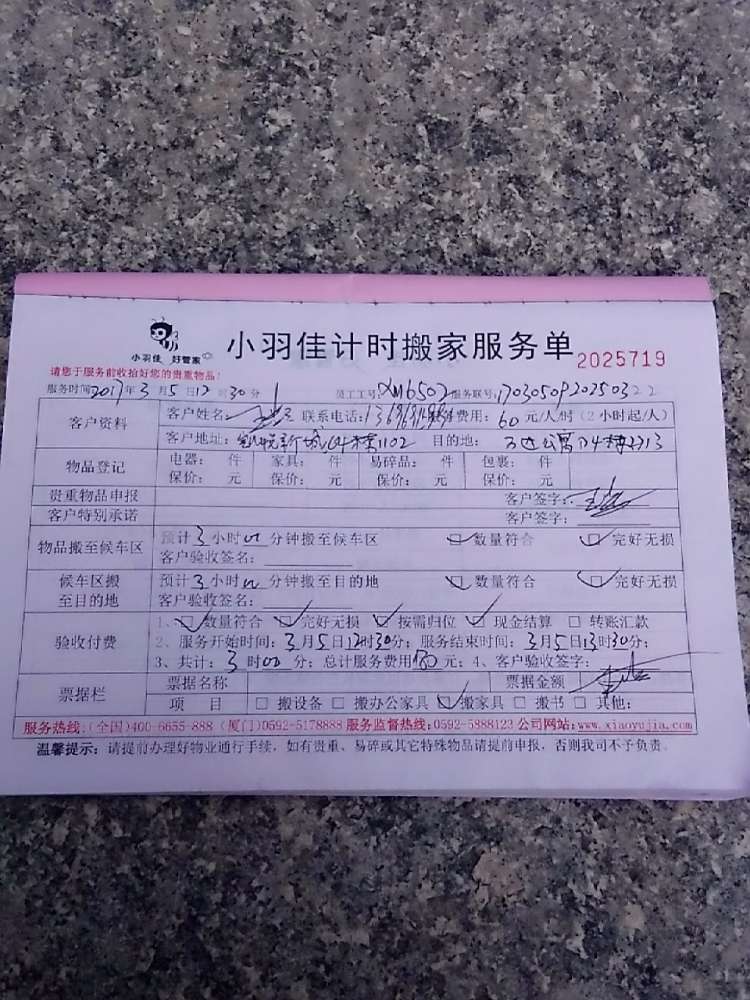 小羽佳 好管家
小羽佳计时搬家服务单 2025719
请您于服务前收拾好您的贵重物品:
服务时间2017年3月5日12时30分 员工工号XM6502服务联号:
客户资料 客户姓名: 联系电话: 费用:60元/人/时(2小时起/人)
客户地址: 1102 目的地:
物品登记 电器: 件 家具: 件 易碎品: 件 包裹: 件
保价: 元 保价: 元 保价: 元 保价: 元
贵重物品申报 客户签字:
客户特别承诺 客户签字:
物品搬至候车区 预计3小时00分钟搬至候车区 数量符合 完好无损
客户验收签名:
候车区搬至目的地 预计3小时00分钟搬至目的地 数量符合 完好无损
客户验收签名:
验收付费 1、数量符合 完好无损 按需归位 现金结算 转账汇款
2、服务开始时间:3月5日12时30分;服务结束时间:3月5日13时30分;
3、共计:3时00分;总计服务费用180元;4、客户验收签字:
票据栏 票据名称 票据金额
项目 搬设备 搬办公家具 搬家具 搬书 其他:
服务热线:(全国)400-6655-888 (厦门)0592-5178888 服务监督热线:0592-5888123 公司网站:www.xiaoyujia.com
温馨提示:请提前办理好物业通行手续,如有贵重、易碎或其它特殊物品请提前申报,否则我司不予负责。